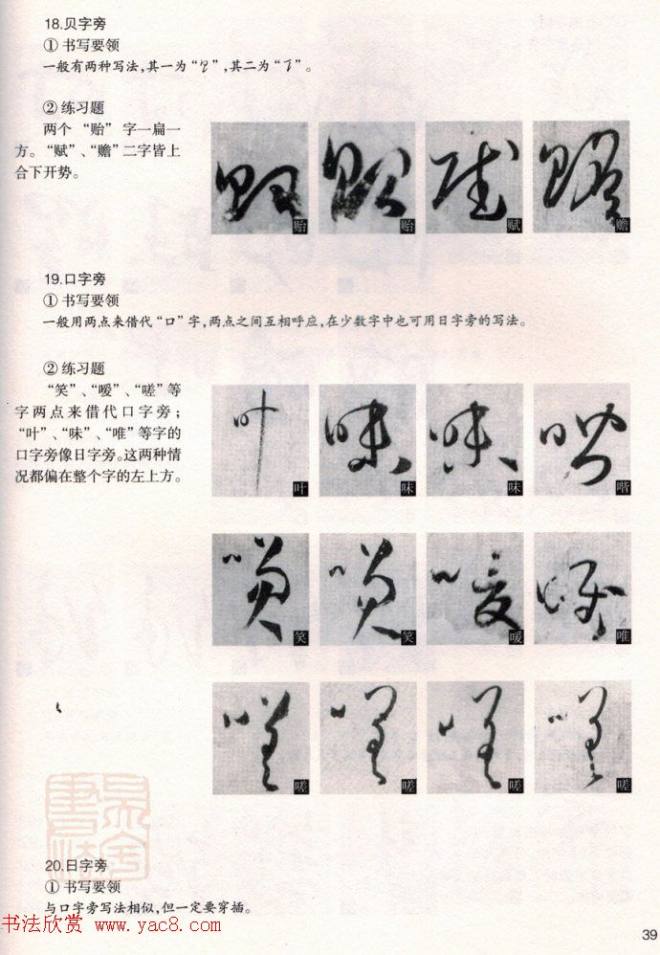 18.贝字旁
① 书写要领
一般有两种写法,其一为“ ”,其二为“ ”。
② 练习题
两个 “贻” 字一扁一
方。“赋”、“赡”二字皆上
合下开势。
贻 贻 赋 赡
19.口字旁
① 书写要领
一般用两点来借代“口”字,两点之间互相呼应,在少数字中也可用日字旁的写法。
② 练习题
“笑”、“嗳”、“嗟”等
字两点来借代口字旁;
“叶”、“味”、“唯”等字的
口字旁像日字旁。这两种情
况都偏在整个字的左上方。
叶 味 味 喈
笑 笑 嗳 唯
嗟 嗟 嗟 嗟
20.日字旁
① 书写要领
与口字旁写法相似,但一定要穿插。
书法欣赏 www.yac8.com
39